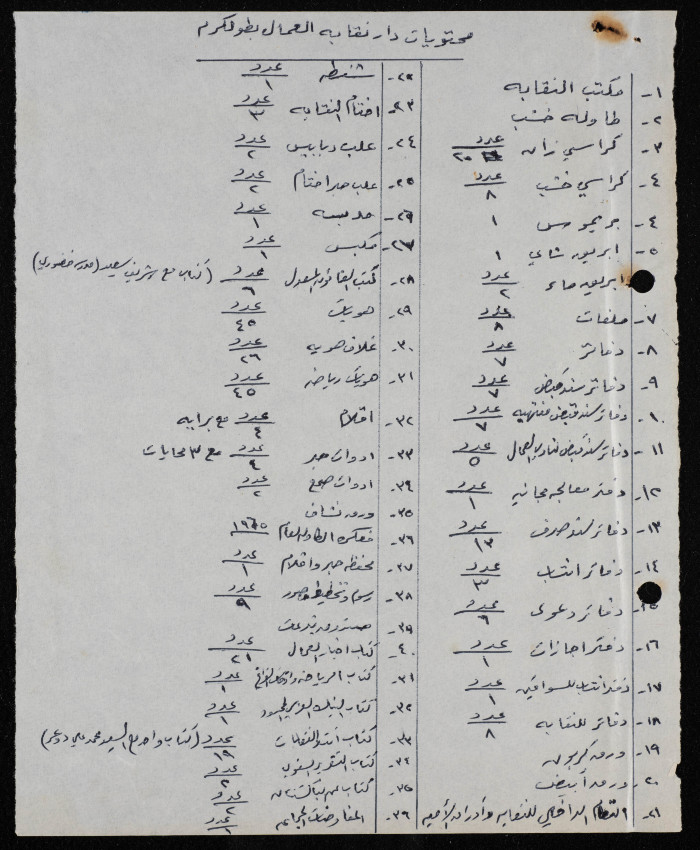 محتويات دار نقابة العمال بطولكرم
١- مكتب النقابه
٢- طاوله خشب
٣- كراسي زان عدد ٢٥
٤- كراسي خشب عدد ٨
٤- بريموس ١
٥- ابريق شاي ١
ابريق ماء عدد ٢
٧- ملفات عدد ٨
٨- دفاتر عدد ٧
٩- دفاتر سند قبض عدد ٧
١٠- دفاتر سند قبض منتهيه عدد ٧
١١- دفاتر سند قبض لنادي العمال عدد ٥
١٢- دفتر معالجه مجانيه عدد ١
١٣- دفاتر سند صرف عدد ١٣
١٤- دفاتر انتساب عدد ٣
١٥- دفاتر دعوى عدد ٦
١٦- دفتر اجازات عدد ١
١٧- دفتر انتساب للسواقين عدد ١
١٨- دفاتر للنقابه عدد ٨
١٩- ورق كربون
٢٠- ورق أبيض
٢١- النظام الداخلي للنقابه وأوراق
٢٢- شنطه عدد ١
٢٣- اختام النقابه عدد ٣
٢٤- علب دبابيس عدد ٢
٢٥- علب حبر اختام عدد ٢
٢٦- عدد ١
٢٧- مكبس عدد ١
٢٨- كتب القانون المعدل عدد ٦ (كتاب مع
٢٩- هويات عدد ٤٥
٣٠- غلاف هويه عدد ٢٦
٣١- هويات رياضه عدد ٤٥
٣٢- اقلام عدد ٤ مع برايه
٣٣- ادوات حبر عدد ٤ مع ٣ محايات
٣٤- ادوات صمغ عدد ٢
٣٥- ورق نشاف
٣٦- مفكره لعام ١٩٦٥
٣٧- محفظه حبر واقلام عدد ١
٣٨- رسم وتخطيط وصور عدد ٩
٣٩- صندوق تبرعات
٤٠- كتاب اخبار العمال عدد ٢١
٣١- كتاب الرياضه عدد ١
٣٢- كتاب البنك العربي عدد ١
٣٣- كتاب أنت والنقابات عدد ١٩ (كتاب واحد مع السيد محمد علي
٣٤- كتاب التقرير السنوي عدد ٢
٣٥- كتاب عدد ٢
٣٦- المفاوضات الجماعيه عدد ١